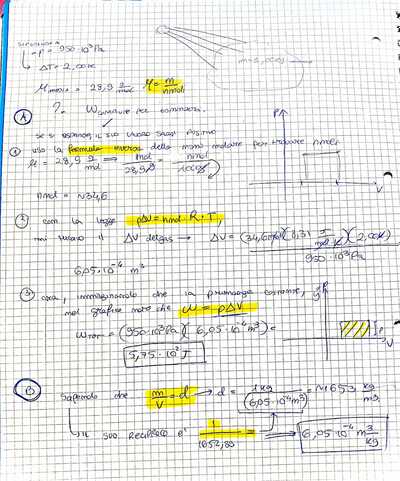 p = 950·10³Pa
ΔT = 2,00K
m=1,00kg
M media = 28,9 g/mol M = m/nmol
?. W
A
se si espande, il suo lavoro sarà positivo
① uso la formula inversa della massa molare per trovare nmol
M = 28,9 g/mol ⟹ mol/28,9g = nmol/1000g
nmol = ~34,6
p
V
② con la legge pΔV = nmol·R·T,
mi trovo il ΔV del gas → ΔV = (34,6mol)(8,31 J/mol·K)(2,00K)/950·10³Pa
6,05·10⁻⁴ m³
③ ora, immaginando che la pressione costante,
nel grafico noto che W = pΔV
W TOT = (950·10³Pa)(6,05·10⁻⁴m³) =
5,75·10² J
p
V
B
Sapendo che m/V = d → d = 1kg/(6,05·10⁻⁴m³) = ~1653 kg/m³
il suo reciproco è 1/1652,89 = ⟹ 6,05·10⁻⁴ m³/kg